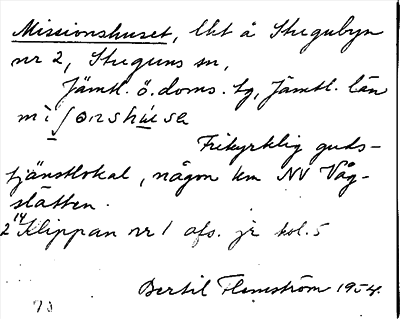 Missionshuset, lht å Stugubyn
nr 2, Stuguns sn,
Jämtl. ö. doms. tg, Jämtl. län
mìʃonshúsa
Frikyrklig guds-
tjänstlokal, någon km NV Våg-
slätten.
2¹⁴ Klippan nr 1 afs. jr kol. 5
Bertil Flemström 1954.